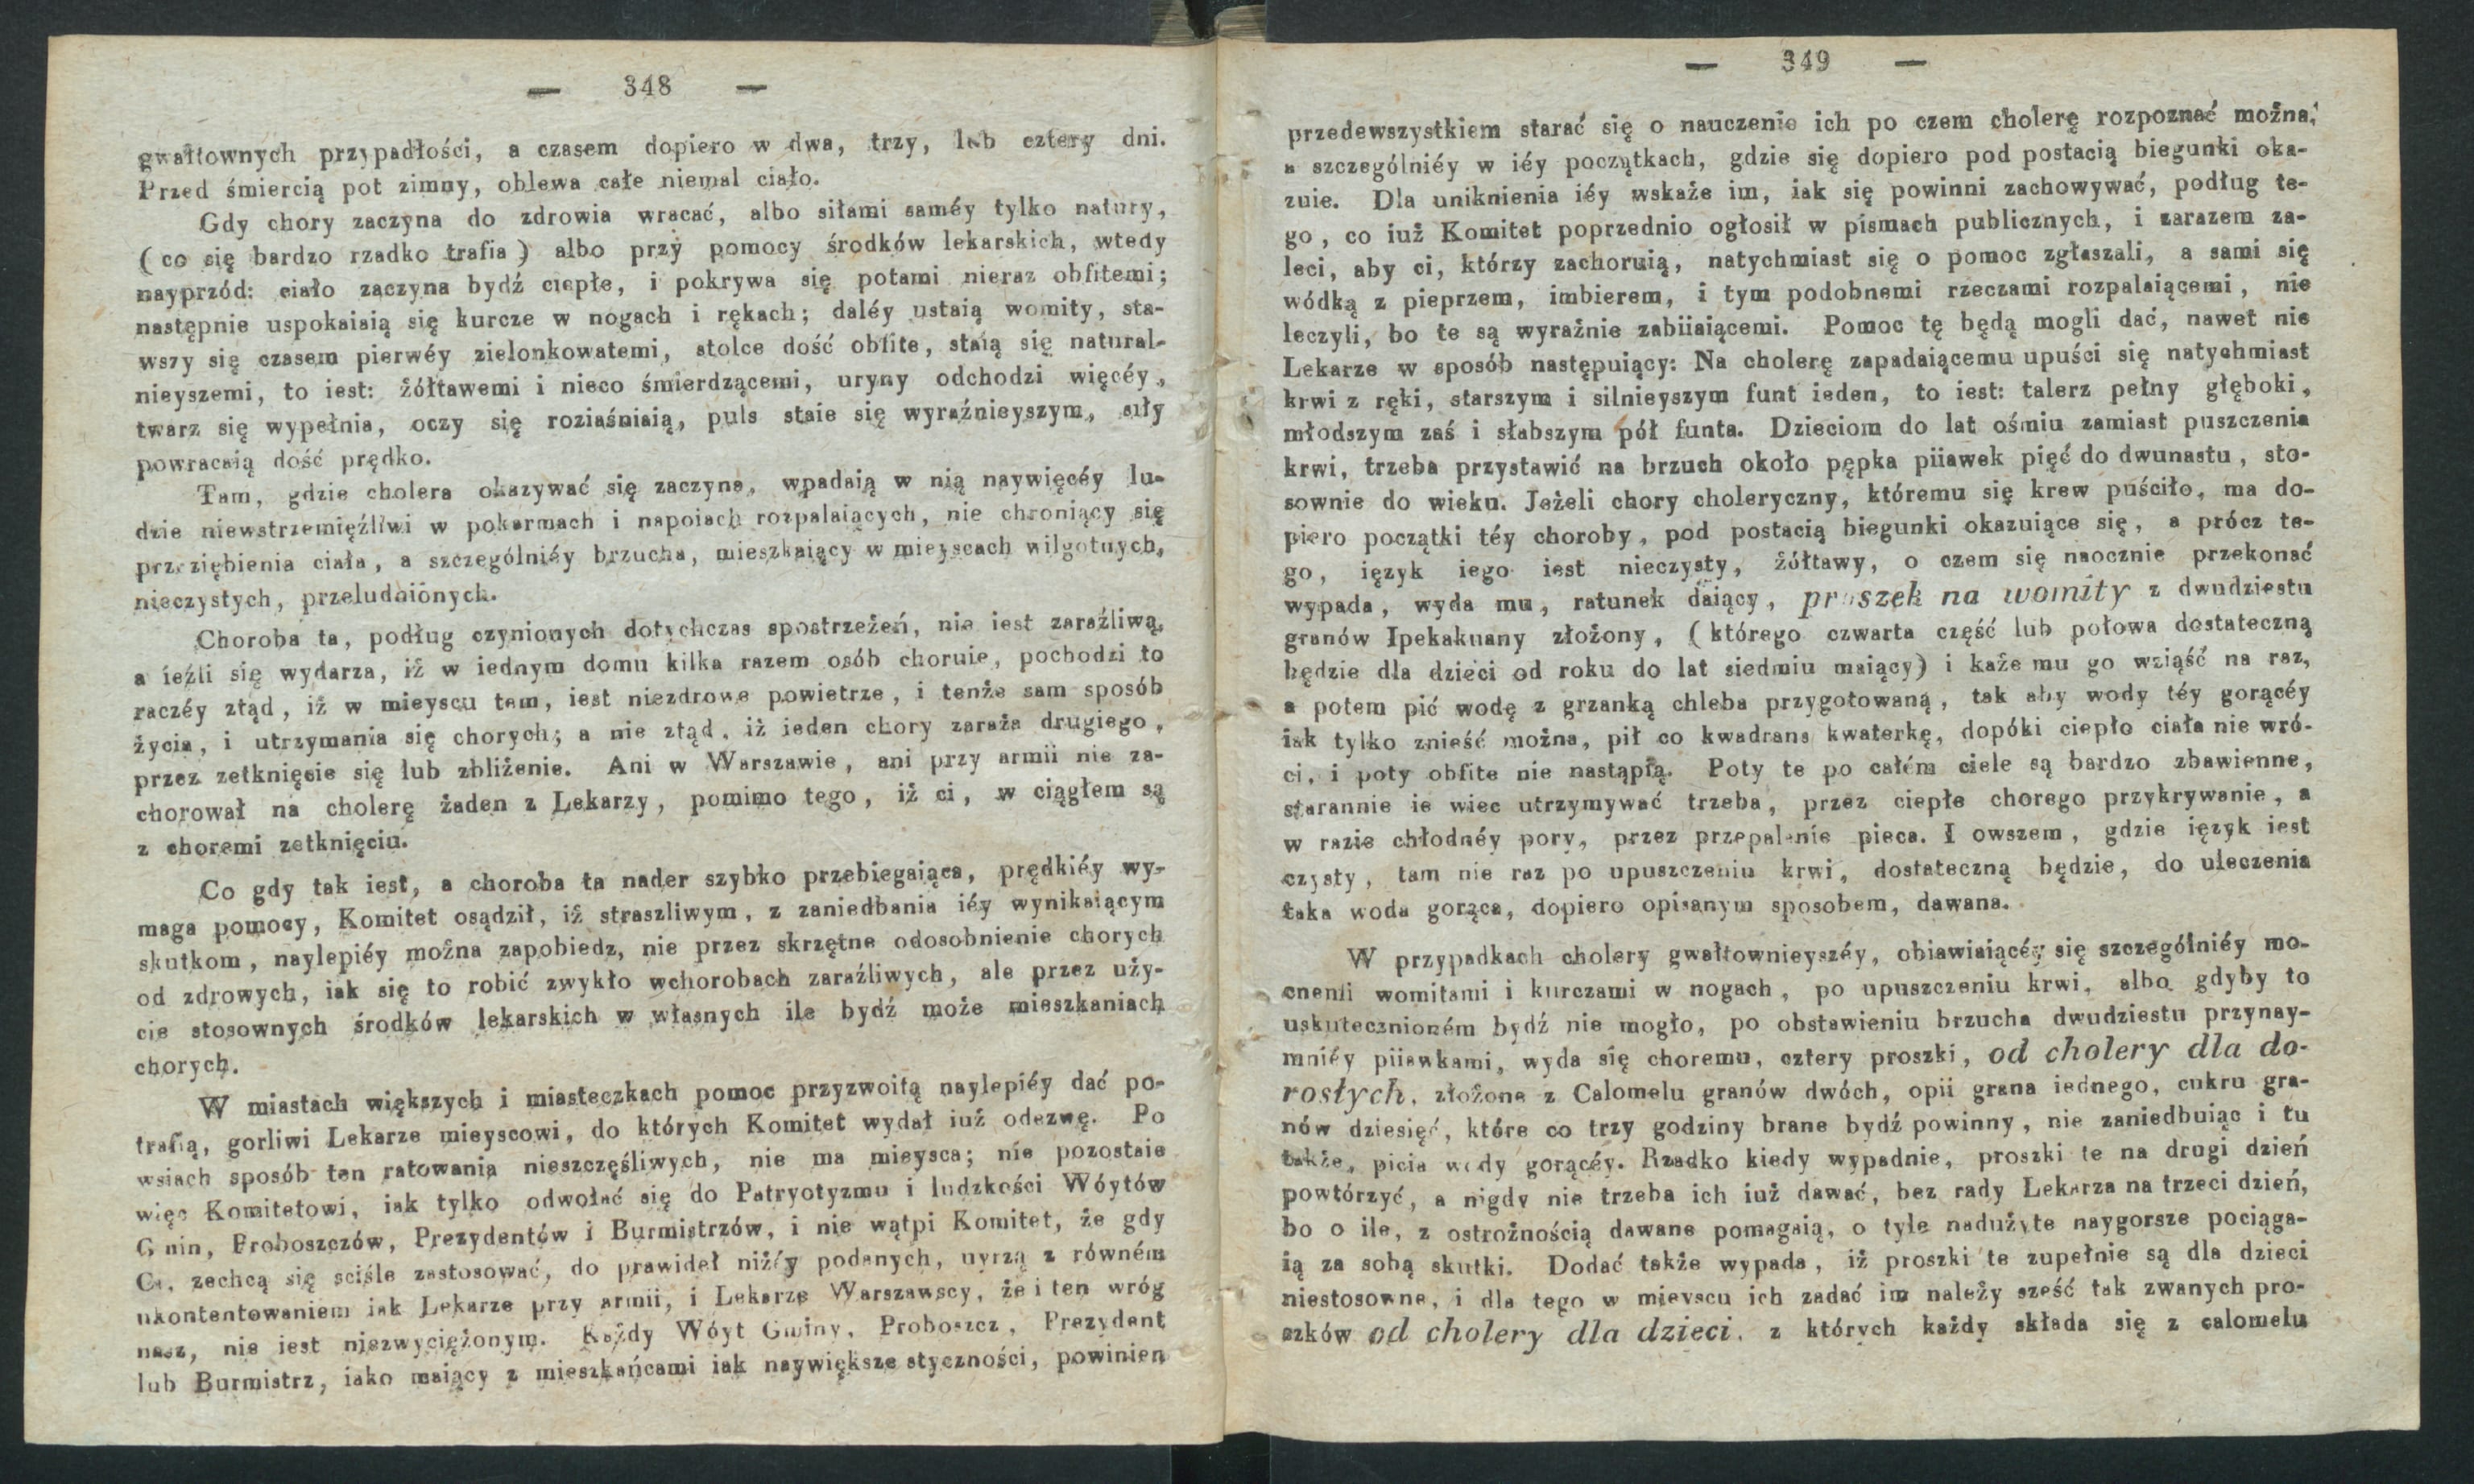 — 348 —
gwałtownych przypadłości, a czasem dopiero w dwa, trzy, lub cztery dni.
Przed śmiercią pot zimny, oblewa całe niemal ciało.
Gdy chory zaczyna do zdrowia wracać, albo siłami saméy tylko natury,
( co się bardzo rzadko trafia ) albo przy pomocy środków lekarskich, wtedy
nayprzód: ciało zaczyna bydź ciepłe, i pokrywa się potami nieraz obfitemi;
następnie uspokaiaią się kurcze w nogach i rękach; daléy ustaią womity, sta-
wszy się czasem pierwéy zielonkowatemi, stolce dość obfite, staią się natural-
nieyszemi, to iest: żółtawemi i nieco śmierdzącemi, uryny odchodzi więcéy,
twarz się wypełnia, oczy się roziaśniaią, puls staie się wyraźnieyszym, siły
powracaią dość prędko.
Tam, gdzie cholera okazywać się zaczyna, wpadaią w nią naywięcéy lu-
dzie niewstrzemięźliwi w pokarmach i napoiach rozpalaiących, nie chroniący się
przeziębienia ciała, a szczególniéy brzucha, mieszkaiący w mieyscach wilgotnych,
nieczystych, przeludnionych.
Choroba ta, podług czynionych dotychczas spostrzeżeń, nie iest zaraźliwą,
a ieźli się wydarza, iż w iednym domu kilka razem osób choruie, pochodzi to
raczéy ztąd, iż w mieyscu tem, iest niezdrowe powietrze, i tenże sam sposób
życia, i utrzymania się chorych; a nie ztąd, iż ieden chory zaraża drugiego,
przez zetknięcie się lub zbliżenie. Ani w Warszawie, ani przy armii nie za-
chorował na cholerę żaden z Lekarzy, pomimo tego, iż ci, w ciągłem są
z choremi zetknięciu.
Co gdy tak iest, a choroba ta nader szybko przebiegaiąca, prędkiéy wy-
maga pomocy, Komitet osądził, iż straszliwym, z zaniedbania iéy wynikaiącym
skutkom, naylepiéy można zapobiedz, nie przez skrzętne odosobnienie chorych
od zdrowych, iak się to robić zwykło wchorobach zaraźliwych, ale przez uży-
cie stosownych środków lekarskich w własnych ile bydź może mieszkaniach
chorych.
W miastach większych i miasteczkach pomoc przyzwoitą naylepiéy dać po-
trafią, gorliwi Lekarze mieyscowi, do których Komitet wydał iuż odezwę. Po
wsiach sposób ten ratowania nieszczęśliwych, nie ma mieysca; nie pozostaie
więc Komitetowi, iak tylko odwołać się do Patryotyzmu i ludzkości Wóytów
Gmin, Proboszczów, Prezydentów i Burmistrzów, i nie wątpi Komitet, że gdy
Ci, zechcą się sciśle zastosować, do prawideł niżéy podanych, uyrzą z równém
ukontentowaniem iak Lekarze przy armii, i Lekarze Warszawscy, że i ten wróg
nasz, nie iest niezwyciężonym. Każdy Wóyt Gminy, Proboszcz, Prezydent
lub Burmistrz, iako maiący z mieszkańcami iak naywiększe styczności, powinien
— 349 —
przedewszystkiem starać się o nauczenie ich po czem cholerę rozpoznać można,
a szczególniéy w iéy początkach, gdzie się dopiero pod postacią biegunki oka-
zuie. Dla uniknienia iéy wskaże im, iak się powinni zachowywać, podług te-
go, co iuż Komitet poprzednio ogłosił w pismach publicznych, i zarazem za-
leci, aby ci, którzy zachoruią, natychmiast się o pomoc zgłaszali, a sami się
wódką z pieprzem, imbierem, i tym podobnemi rzeczami rozpalaiącemi, nie
leczyli, bo te są wyraźnie zabiiaiącemi. Pomoc tę będą mogli dać, nawet nie
Lekarze w sposób następuiący: Na cholerę zapadaiącemu upuści się natychmiast
krwi z ręki, starszym i silnieyszym funt ieden, to iest: talerz pełny głęboki,
młodszym zaś i słabszym pół funta. Dzieciom do lat ośmiu zamiast puszczenia
krwi, trzeba przystawić na brzuch około pępka piiawek pięć do dwunastu, sto-
sownie do wieku. Jeżeli chory choleryczny, któremu się krew puściło, ma do-
piero początki téy choroby, pod postacią biegunki okazuiące się, a prócz te-
go, ięzyk iego iest nieczysty, żółtawy, o czem się naocznie przekonać
wypada, wyda mu, ratunek daiący, proszek na womity z dwudziestu
granów Ipekakuany złożony, ( którego czwarta część lub połowa dostateczną
będzie dla dzieci od roku do lat siedmiu maiący) i każe mu go wziąść na raz,
a potem pić wodę z grzanką chleba przygotowaną, tak aby wody téy gorącéy
iak tylko znieść można, pił co kwadrans kwaterkę, dopóki ciepło ciała nie wró-
ci, i poty obfite nie nastąpią. Poty te po całém ciele są bardzo zbawienne,
starannie ie wiec utrzymywać trzeba, przez ciepłe chorego przykrywanie, a
w razie chłodnéy pory, przez przepalenie pieca. I owszem, gdzie ięzyk iest
czysty, tam nie raz po upuszczeniu krwi, dostateczną będzie, do uleczenia
taka woda gorąca, dopiero opisanym sposobem, dawana.
W przypadkach cholery gwałtownieyszéy, obiawiaiącéy się szczególniéy mo-
cnemi womitami i kurczami w nogach, po upuszczeniu krwi, albo gdyby to
uskutecznioném bydź nie mogło, po obstawieniu brzucha dwudziestu przynay-
mniéy piiawkami, wyda się choremu, cztery proszki, od cholery dla do-
rosłych, złożone z Calomelu granów dwóch, opii grana iednego, cukru gra-
nów dziesięć, które co trzy godziny brane bydź powinny, nie zaniedbuiąc i tu
także, picia wody gorącéy. Rzadko kiedy wypadnie, proszki te na drugi dzień
powtórzyć, a nigdy nie trzeba ich iuż dawać, bez rady Lekarza na trzeci dzień,
bo o ile, z ostrożnością dawane pomagaią, o tyle nadużyte naygorsze pociąga-
ią za sobą skutki. Dodać także wypada, iż proszki te zupełnie są dla dzieci
niestosowne, i dla tego w mieyscu ich zadać im należy sześć tak zwanych pro-
szków od cholery dla dzieci, z których każdy składa się z calomelu